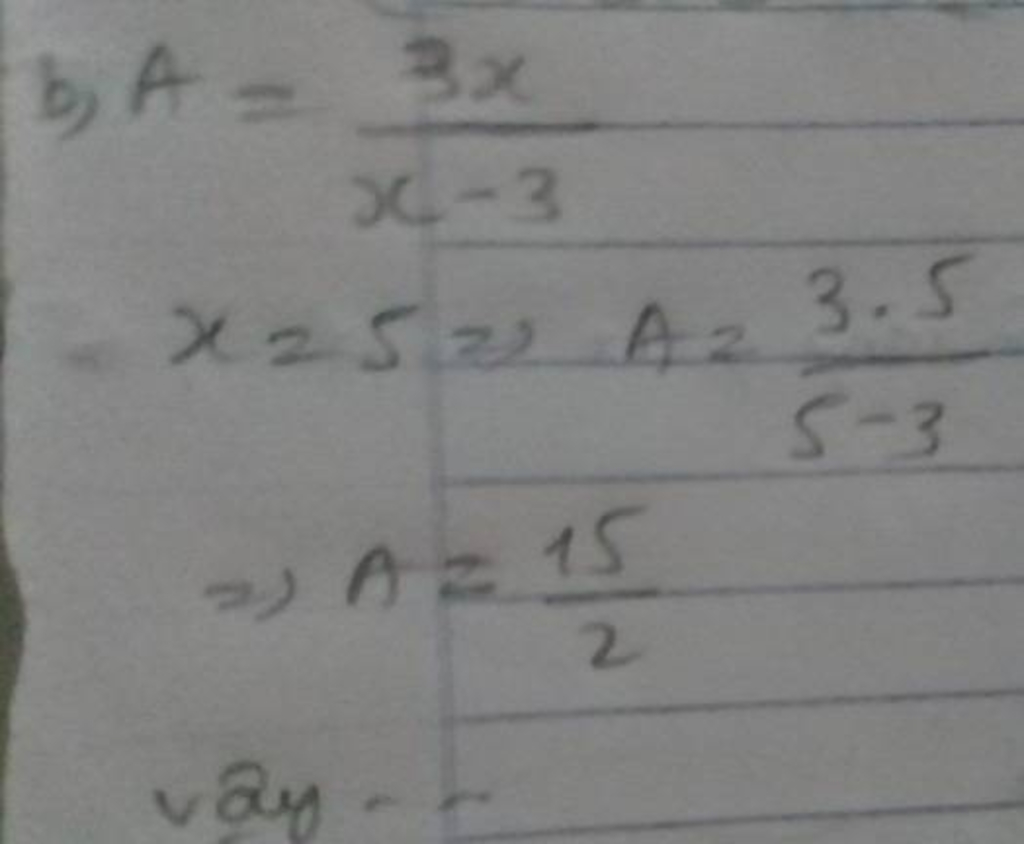 b, A = 3x / x - 3
x = 5 => A = 3.5 / 5-3
=> A = 15 / 2
vậy - -